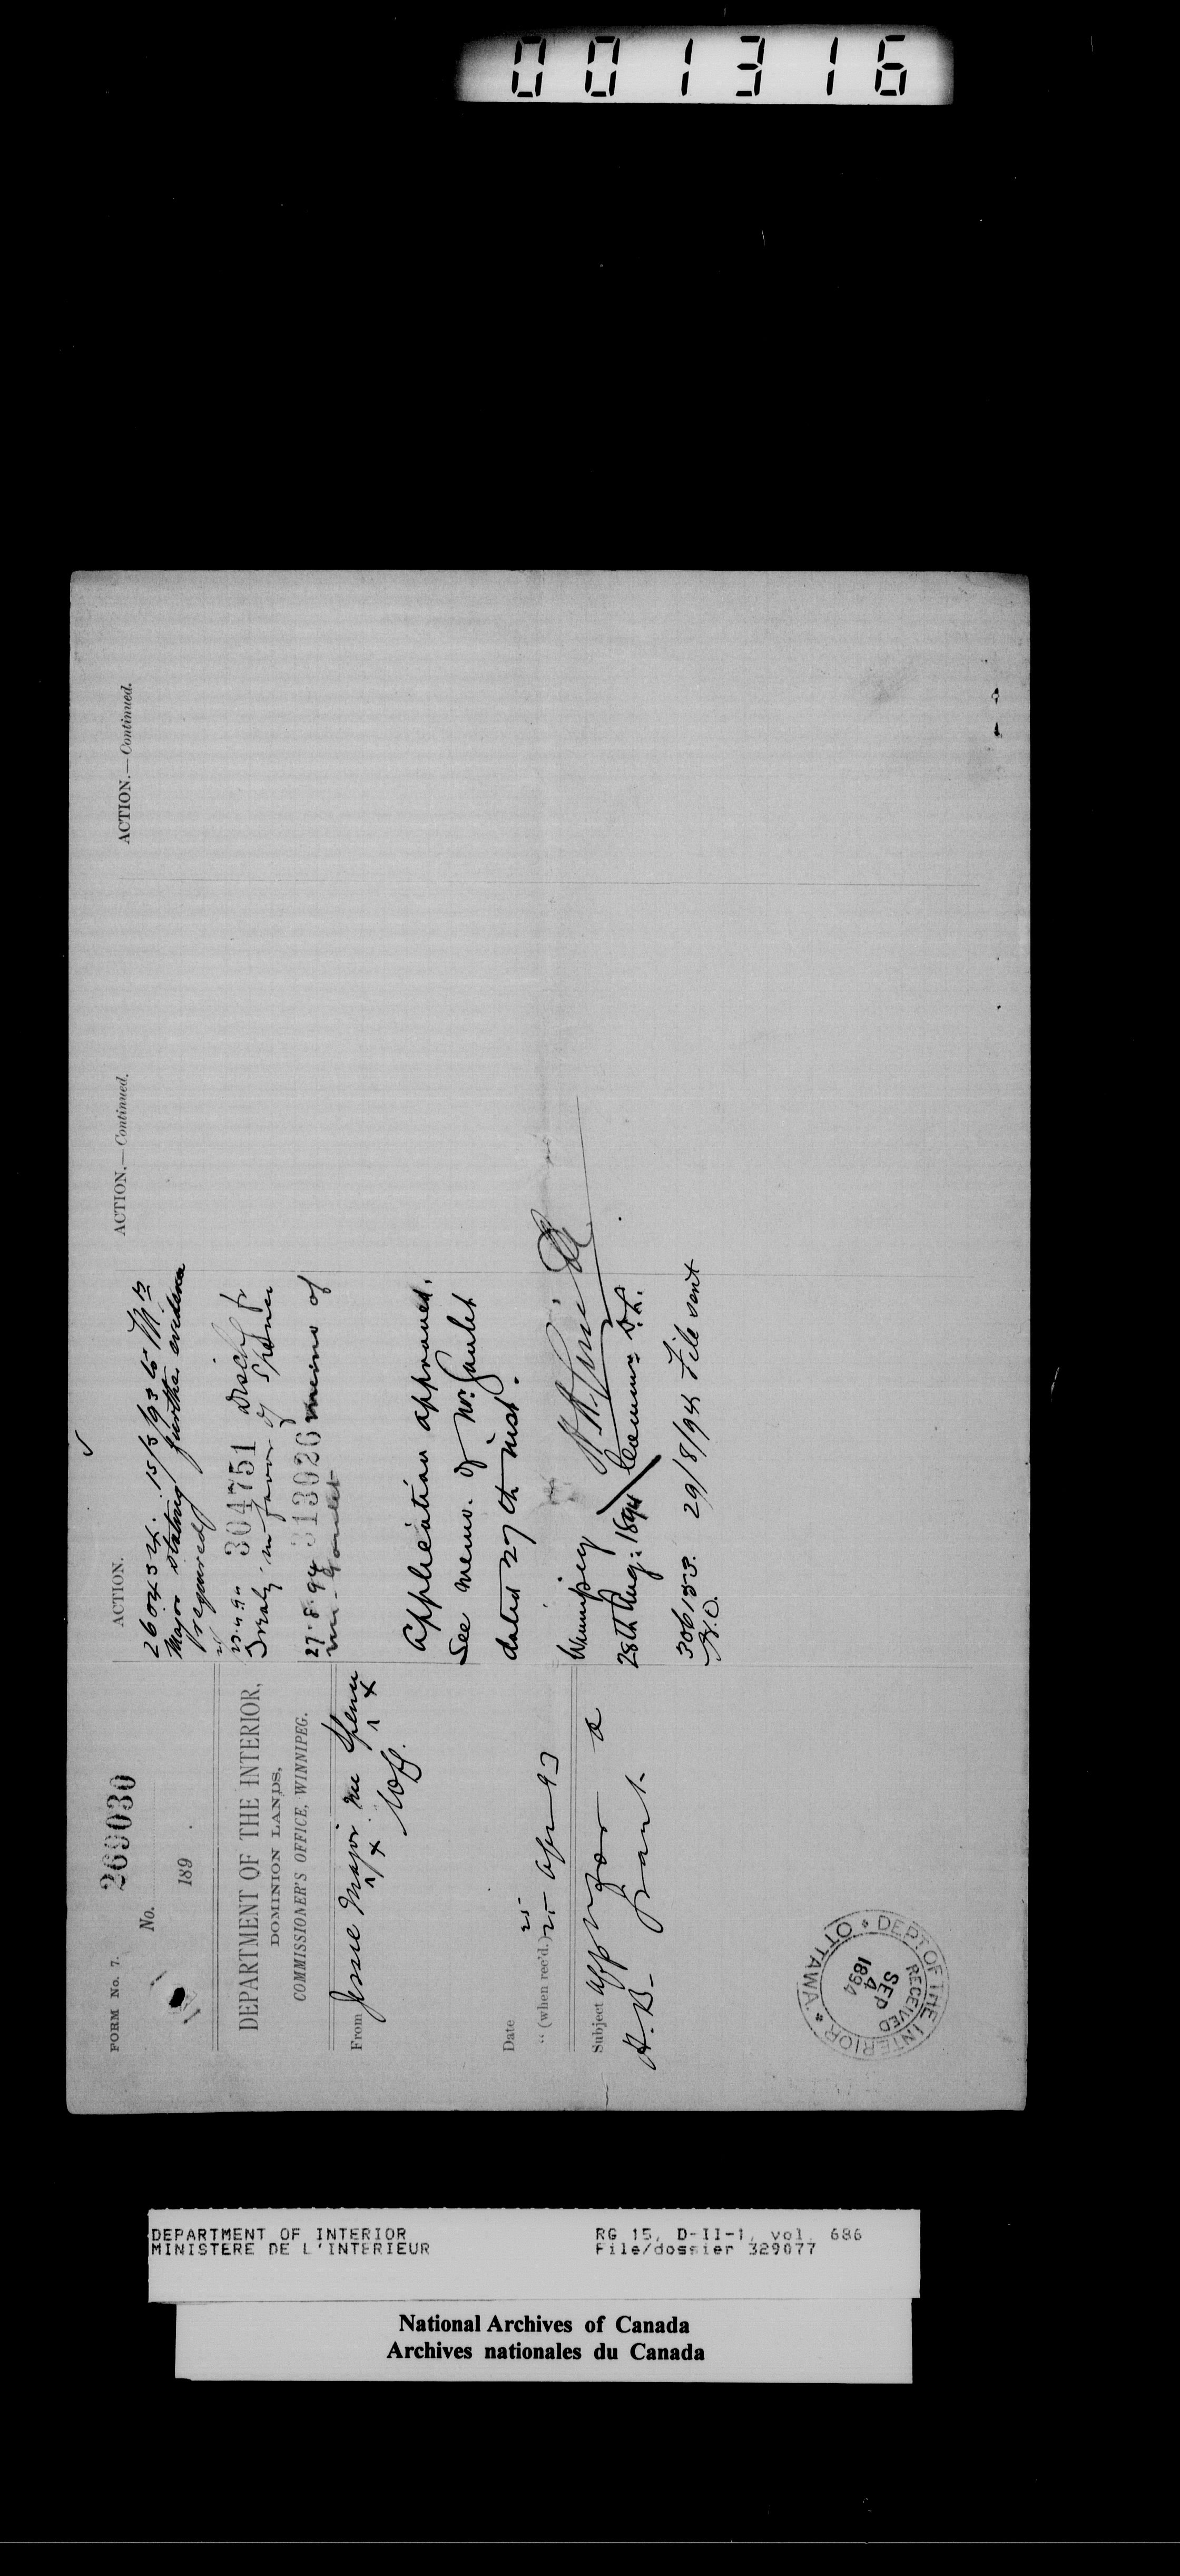 001316
FORM No. 7.
269030
No.
189
DEPARTMENT OF THE INTERIOR,
DOMINION LANDS,
COMMISSIONER'S OFFICE, WINNIPEG.
From Jessie Major nee Spence
Date
25
" (when rec'd.) Apr 93
Subject App for a
H. B. grant.
RECEIVED
SEP
4
1894
DEPT OF THE INTERIOR * OTTAWA *
ACTION.
15/5/93 to Mrs
Major stating further evidence
required
304751 Disch fr
Treaty in favor of Spence
27.8.94 313026 memo of
Mr. Goulet
Application approved.
See memo. of Mr. Goulet
dated 27th inst.
Winnipeg
28th Aug: 1894
306153. 29/8/94 File sent
H.O.
ACTION.—Continued.
ACTION.—Continued.
DEPARTMENT OF INTERIOR
MINISTERE DE L'INTERIEUR
RG 15, D-II-1, vol. 686
File/dossier 329077
National Archives of Canada
Archives nationales du Canada